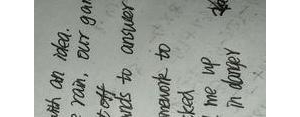 with an idea.
rain, our gar
off
nds to answer
mework to
ked
me up
in danger